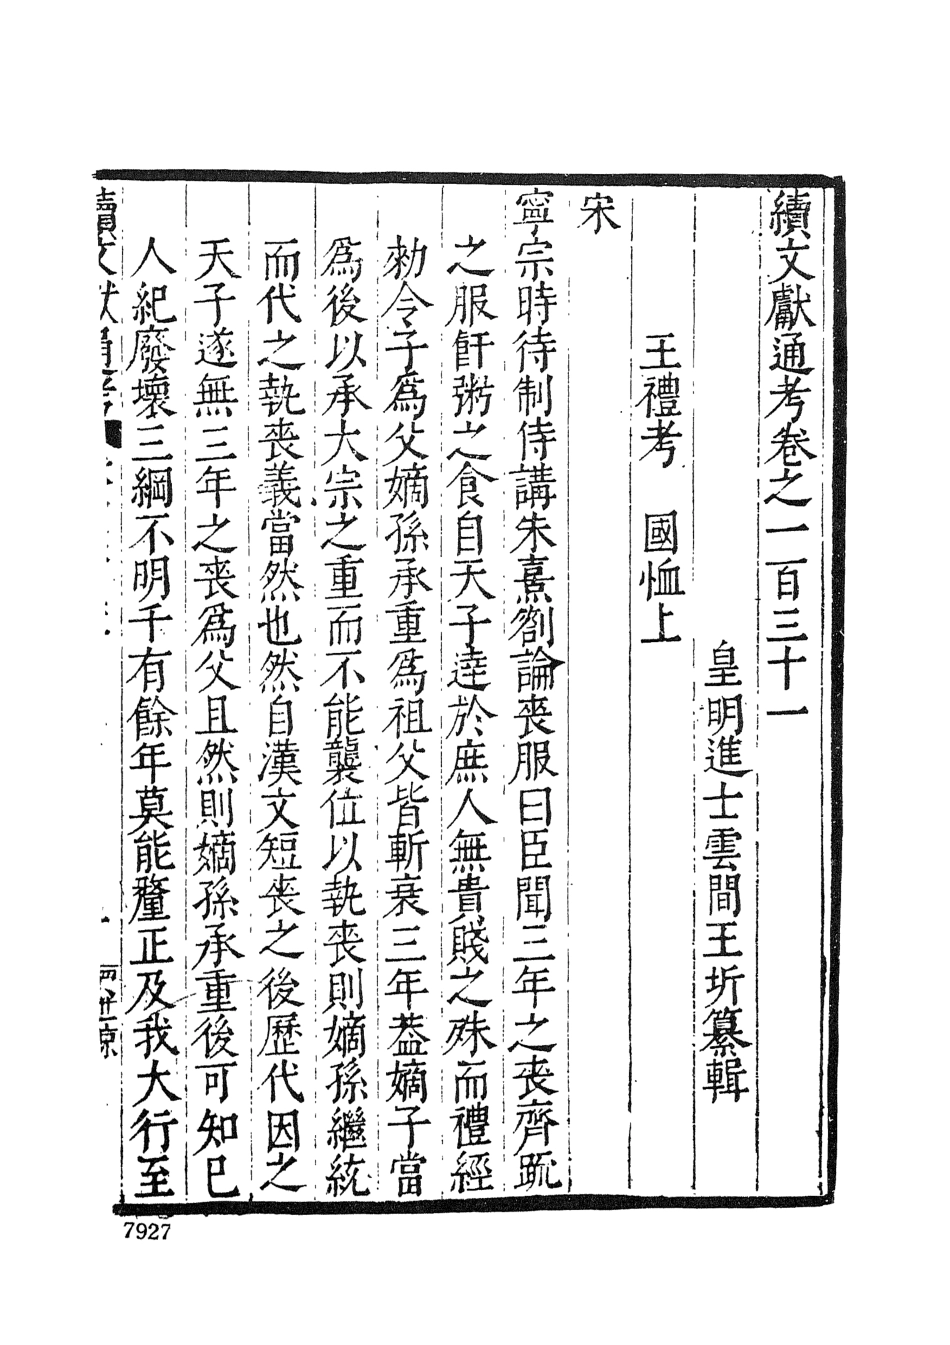 續文獻通考卷之一百三十一
皇明進士雲間王圻纂輯
王禮考　國恤上
宋
寧宗時待制侍講朱熹劄論喪服曰臣聞三年之喪齊䟽
之服飦粥之食自天子逹於庶人無貴賤之殊而禮經
勑令子爲父嫡孫承重爲祖父皆斬衰三年葢嫡子當
爲後以承大宗之重而不能襲位以執喪則嫡孫繼統
而代之執喪義當然也然自漢文短喪之後歷代因之
天子遂無三年之喪爲父且然則嫡孫承重後可知已
人紀廢壞三綱不明千有餘年莫能釐正及我大行至
續文獻通考
7927